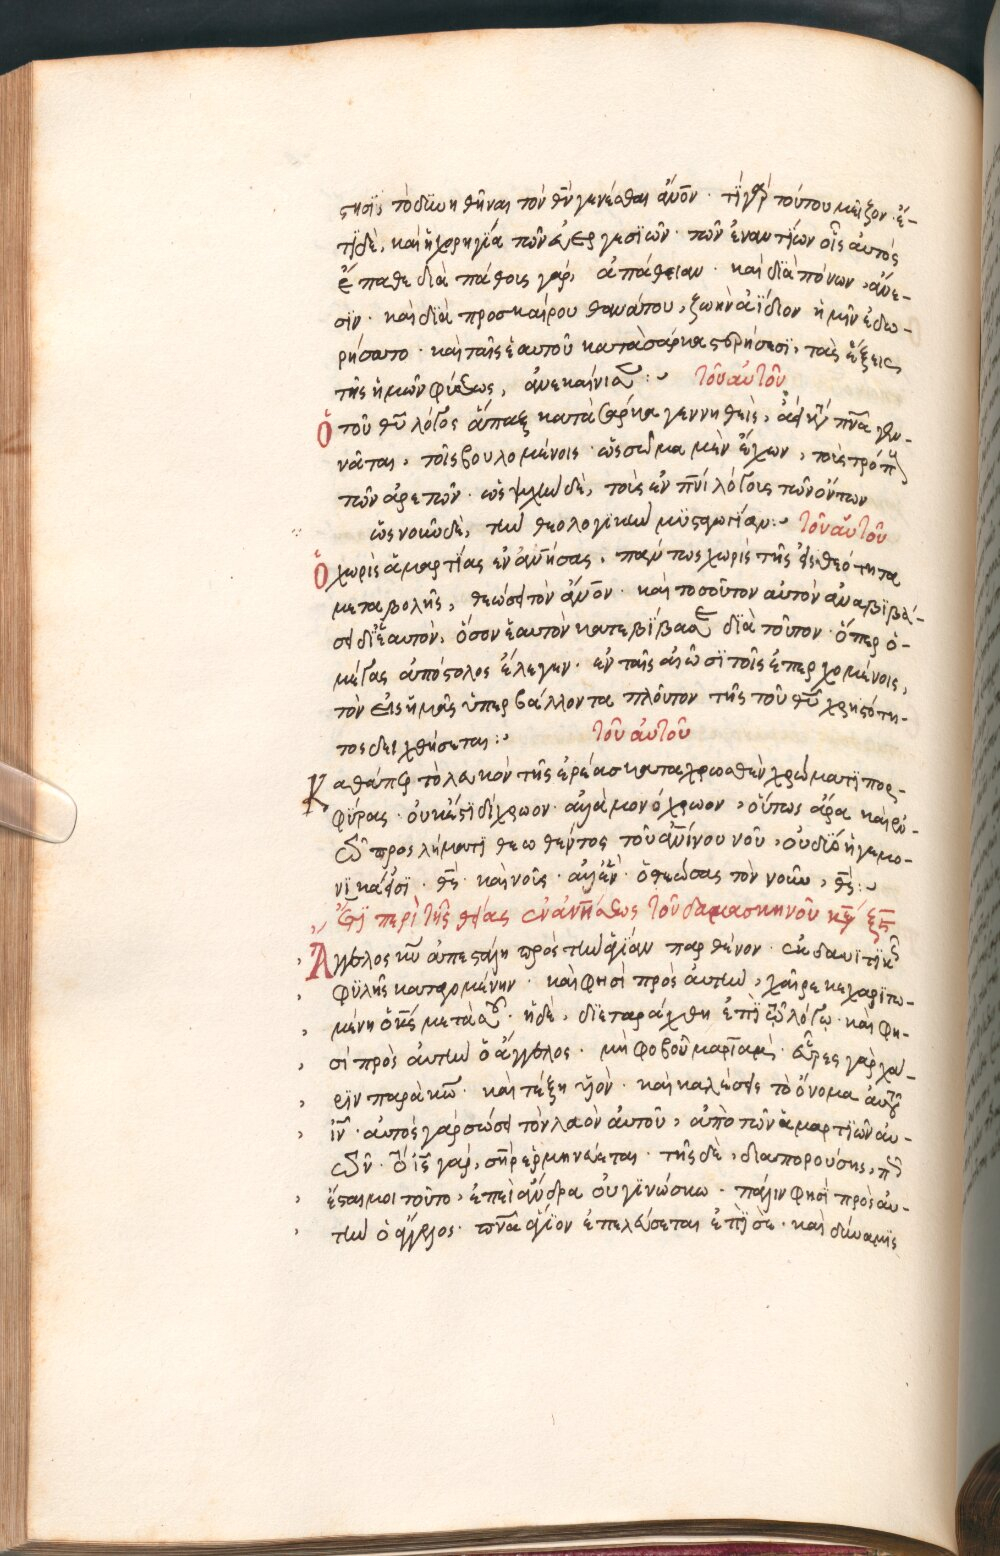 στησι, τὸ διωηθῆναι τὸν θν γενέσθαι ἄνον · τί γὰρ τούτου μεῖζον · ἔ-
τι δὲ, καὶ ἡ χορηγία τῶν εὐεργεσιῶν · τῶν ἐναντίων οἷς αὐτὸς
ἔπαθε διὰ πάθοις γὰρ, ἀπάθειαν · καὶ διὰ πόνων, ἄνε-
σιν · καὶ διὰ προσκαίρου θανάτου, ζωὴν ἀΐδιον ἡμῖν ἐδω-
ρήσατο · καὶ ταῖς ἑαυτοῦ κατὰ σάρκα στρήσεσι, τὰς ἕξεις
τῆς ἡμῶν φύσεως, ἀνεκαίνισε :- τοῦ αὐτοῦ
Ὁ τοῦ θυ λόγος ἅπαξ κατὰ σάρκα γεννηθεὶς, ἀεὶ πνα γεν-
νᾶται, τοῖς βουλομένοις · ὡς σῶμα μὲν ἔχων, τοὺς τρόπους
τῶν ἀρετῶν · ὡς ψυχὴν δὲ, τοὺς ἐν πνι λόγους τῶν ὄντων
ὡς νοῦν δὲ, τὴν θεολογικὴν μυσταγωγίαν :- τοῦ αὐτοῦ
Ὁ χωρὶς ἁμαρτίας ἐνανήσας, πάντως χωρὶς τῆς εἰς θεότητα
μεταβολῆς, θεώσει τὸν ἄνον · καὶ τοσοῦτον αὐτὸν ἀναβιβά-
σει δι' ἑαυτὸν, ὅσον ἑαυτὸν κατεβίβασε διὰ τοῦτον · ὅπερ ὁ
μέγας ἀπόστολος ἔλεγεν · ἐν τοῖς αἰῶσι τοῖς ἐπερχομένοις,
τὸν εἰς ἡμᾶς ὑπερβάλλοντα πλοῦτον τῆς τοῦ θυ χρηστότη-
τος δειχθήσεται :- τοῦ αὐτοῦ
Καθάπερ τὸ λευκὸν τῆς ἐρέας καταχρωσθὲν χρώματι πορ-
φύρας · οὐκέτι δίχρωον · ἀλλὰ μονόχρωον, οὕτως ἄρα καὶ ἐν
τῶ προσλήματι θεωθέντος τοῦ ἀνίνου νοῦ, οὐ δύο ἡγεμο-
νικά εἰσι · θς καὶ νοῦς · ἀλλ' ἓν · ὁ θεώσας τὸν νοῦν, θς :-
Ἔτι περὶ τῆς θείας ἐνανήσεως τοῦ δαμασκηνοῦ κεφ
Ἄγγελος κυ ἀπεστάλη πρὸς τὴν ἁγίαν παρθένον · ἐκ δαυιτικῆς
φυλῆς καταγομένην · καὶ φησὶ πρὸς αὐτὴν, χαῖρε κεχαριτω-
μένη ὁ κς μετὰ σοῦ · ἡ δὲ, διεταράχθη ἐπὶ τῷ λόγῳ · καὶ φη-
σὶ πρὸς αὐτὴν ὁ ἄγγελος · μὴ φοβοῦ μαριὰμ · εὗρες γὰρ χά-
ριν παρὰ κω · καὶ τέξη υἱὸν · καὶ καλέσεις τὸ ὄνομα αὐτοῦ
ιν · αὐτὸς γὰρ σώσει τὸν λαὸν αὐτοῦ, ἀπὸ τῶν ἁμαρτιῶν αὐ-
τῶν · ὁ ις γὰρ, σηρ ἑρμηνεύεται · τῆς δὲ, διαπορούσης, πῶς
ἔσται μοι τοῦτο, ἐπεὶ ἄνδρα οὐ γινώσκω · πάλιν φησὶ πρὸς αὐ-
τὴν ὁ ἄγγελος · πνα ἅγιον ἐπελεύσεται ἐπὶ σὲ · καὶ δύναμις